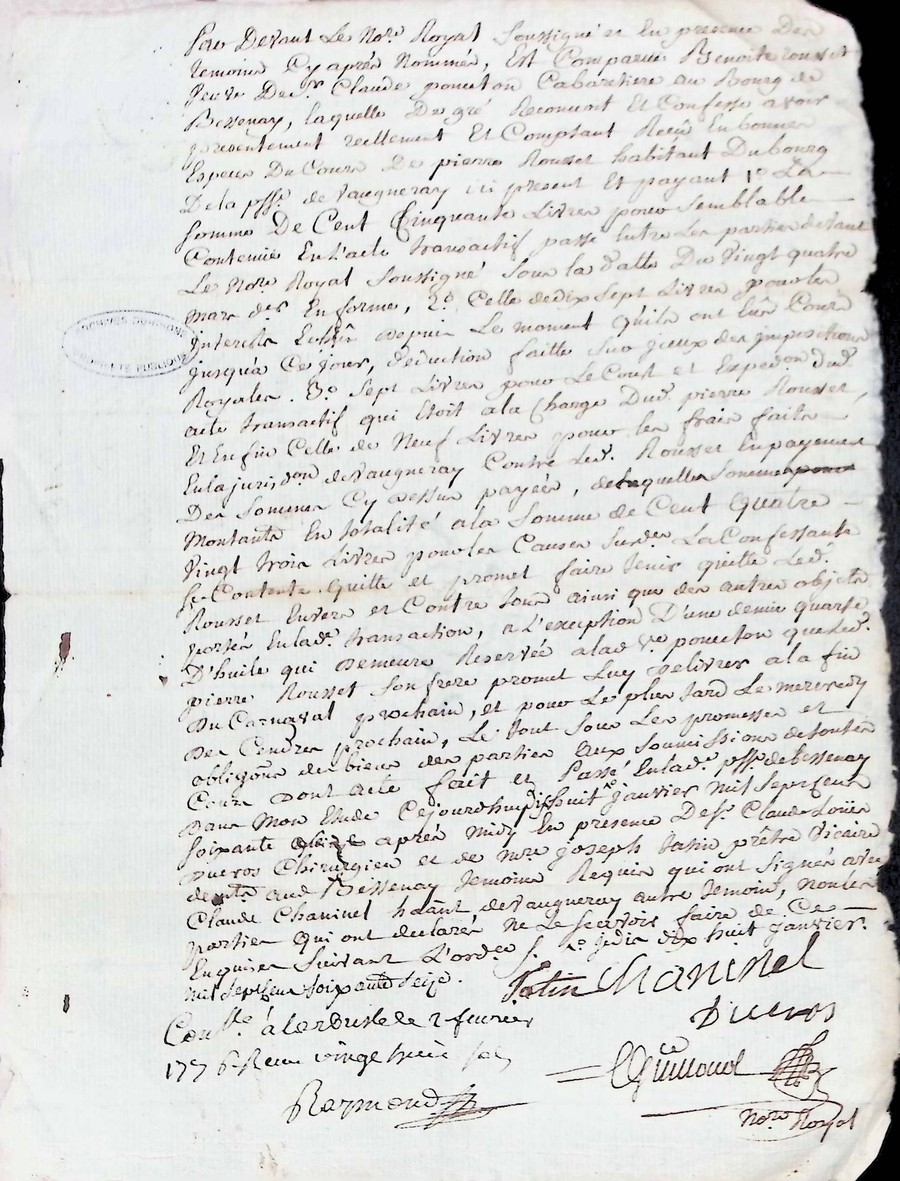 Par Devant Le Nore. Royal Soussigné et En presence Des
temoins Cy après Nommés, Est Comparue Benoite rousset
veuve De Sr. Claude poncton Cabaretiere au Bourg de
Bessenay, laquelle De gré Reconnoit Et Confesse avoir
presentement reellement Et Comptant Receu En bonnes
Especes Du Cours De pierre Rousset habitant Du bourg
De la psse. de vaugneray ici present Et payant 1o. La
somme De Cent Cinquante Livres pour semblable
Contenüe En L'acte transactif passé Entre Les parties devant
Le Nore. Royal Soussigné sous la datte Du vingt quatre
mars dern. En forme, 2o. Celle de dix sept Livres pour les
interets depuis Le moment qu'ils ont Eu Cours
jusqu'à Ce jour, deduction faitte sur iceux des impositions
Royales. 3o. sept Livres pour Le Cout et Expedon. dud.
acte transactif qui Etoit a la Charge Dud. pierre Rousset,
Et En fin Celle de Neuf Livres pour les frais faits
En la jurisdon. de vaugneray Contre Led. Rousset En payement
Des sommes Cy dessus payées, de laquelle somme
Montante En totalité a la somme de Cent quatre
vingt trois Livres pour les Causes susd. La Confessante
se Contente quitte et promet faire tenir quitte Led.
Rousset Envers et Contre tous ainsi que des autres objets
portés En lad. transaction, a L'exception D'une demie quarte
D'huile qui Demeure Reservée a lad. ve. poncton que Led.
pierre Rousset son frere promet Luy delivrer a la fin
Du Carnaval prochain, et pour Le plus tard Le mercredy
Des Cendres prochain, Le tout sous Les promesses et
obligons. des biens des parties aux soumissions de toutes
Cours dont acte fait et Passé En lad. psse. de Bessenay
dans Mon Etude Cejourdhuy dix huit janvier mil sept cent
soixante seize après midy En presence De Sr. Claude Loüis
Ducros Chirurgien et de mre. joseph Jatin prêtre vicaire
demt. aud. Bessenay temoins Requis qui ont signés avec
Claude Chaninel habant. de vaugneray autre temoin, non les
parties qui ont declarés ne Le scavoir faire de Ce
Enquises suivant L'ordce. Ce jeudi dix huit janvier
mil sept cent soixante seize.
Jatin Chaninel
Ducros
Conllé. à Larbresle le 2 fevrier
1776 Reçu vingt huit sols
Guimond
Raymond
Nore. Royal